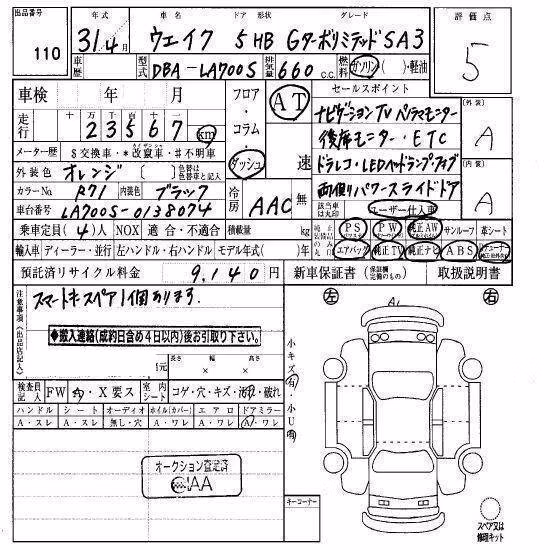 出品番号 110
年式 31.4月
車名 ウェイク
ドア 形状 5 HB
グレード Gターボリミテッド SA3
評価点 5
車歴
型式 DBA-LA700S
排気量 660 c.c.
燃料 ガソリン・( )・軽油
車検 年 月
フロア・コラム・ダッシュ
AT
速
セールスポイント
ナビゲーションTV パノラマモニター
後席モニター・ETC
ドラレコ・LEDヘッドランプ・フォグ
両側パワースライドドア
該当車は丸印 ユーザー仕入車
外装 A
内装 A
走行 十 万 千 百 十 一
23567 km
メーター歴 $交換車・*改竄車・#不明車
外装色 オレンジ ( ) 色替は色替車と記入
カラーNo. R71 内装色 ブラック
冷房 AAC 無
車台番号 LA700S-0138074
乗車定員 (4)人 NOX 適合・不適合 積載量 kg
純正 PS 純正 PW 純正AW サンルーフ 革シート
輸入車 ディーラー・並行 左ハンドル・右ハンドル モデル年式( )年
エアバッグ 純正TV 純正ナビ ABS
預託済リサイクル料金 9,140 円
新車保証書 (保証継続のもの) 取扱説明書
注意事項(出品店記入)
スマートキースペア1個あります.
◆搬入連絡(成約日含め4日以内)後お引取り下さい.◆
元 長さ × 幅 × 高さ
検査員記入 FW 内・X要ス 室内シート コゲ・穴・キズ・汚・破れ
ハンドル シート オーディオ ホイル(カバー) エアロ ドアミラー
A・スレ A・スレ 無し・穴 A・ワレ A・ワレ A・ワレ
オークション査定済
AA
小キズ有・小U有
キーコーナー
左
右
A1
スペア又は修理キット